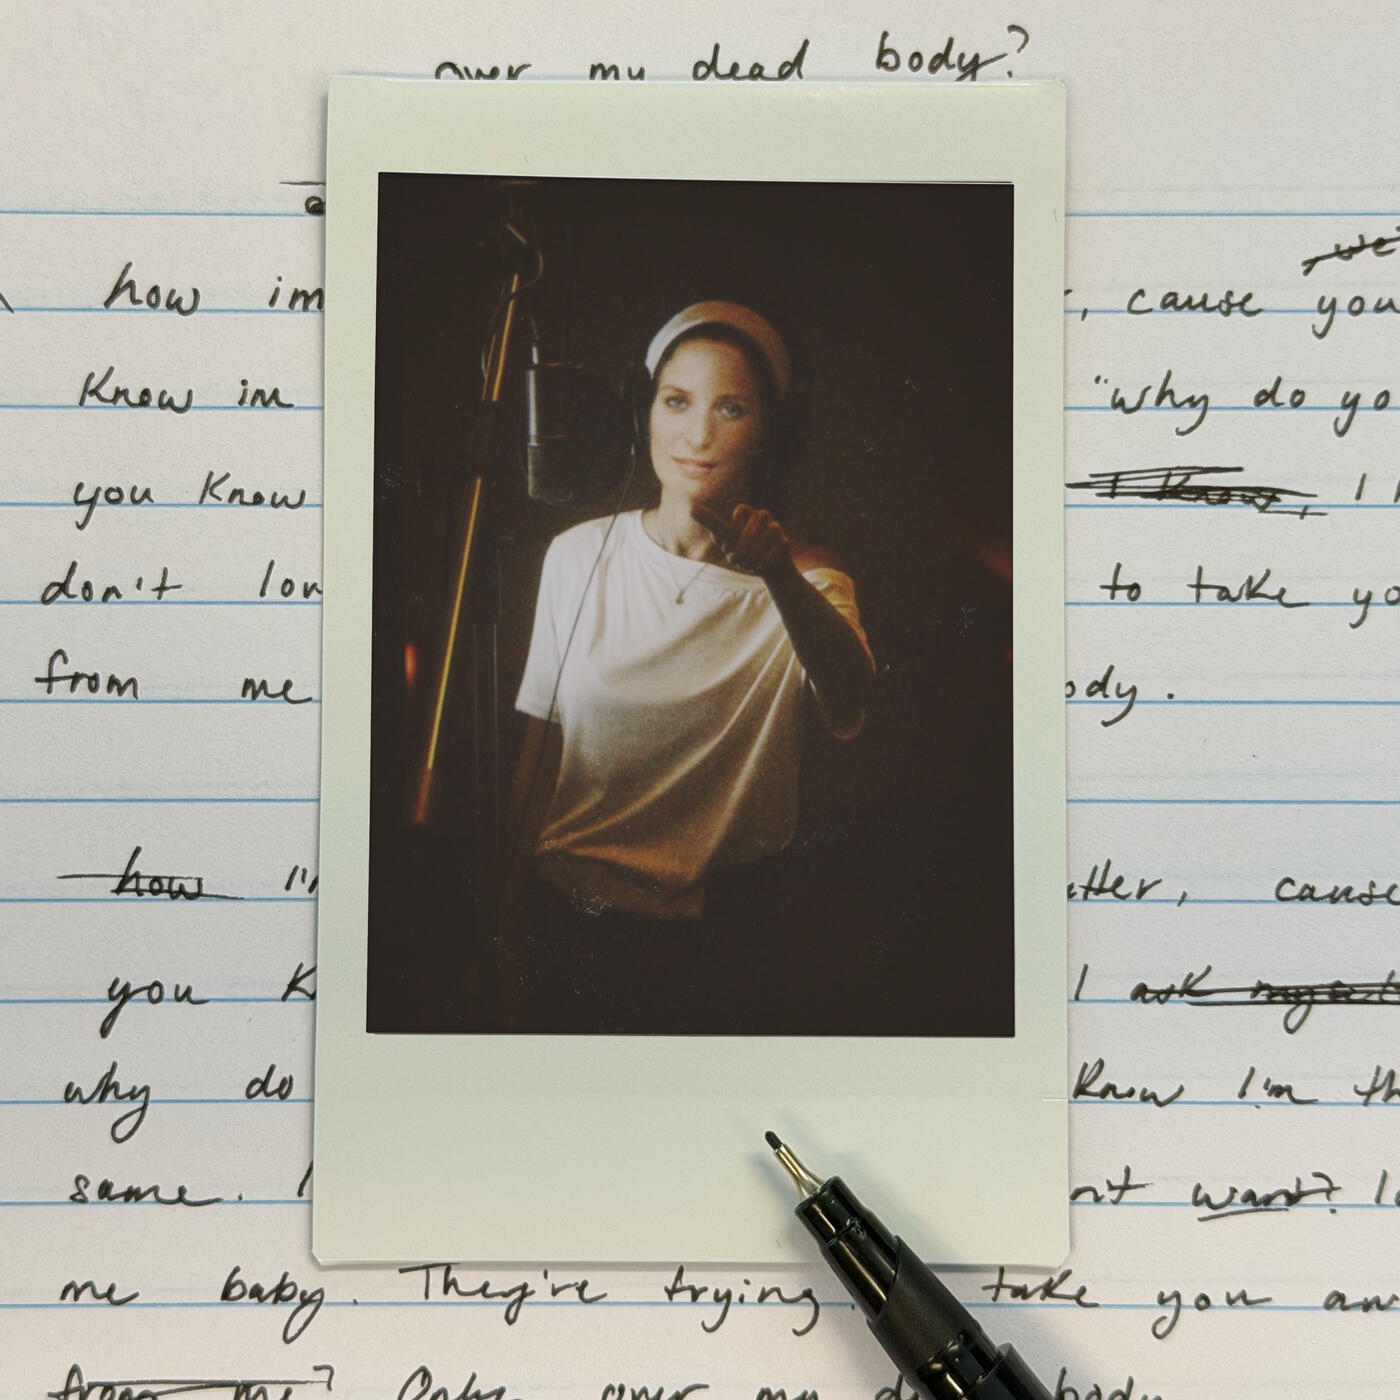 over my dead body?
how im , cause you
Know im "why do yo
you Know I Know, I
don't lov to take yo
from me ody.
how I'm atter, cause
you K I ask myself
why do Know I'm th
same. I n't want? lo
me baby. They're trying. take you aw
from me? Only over my d body